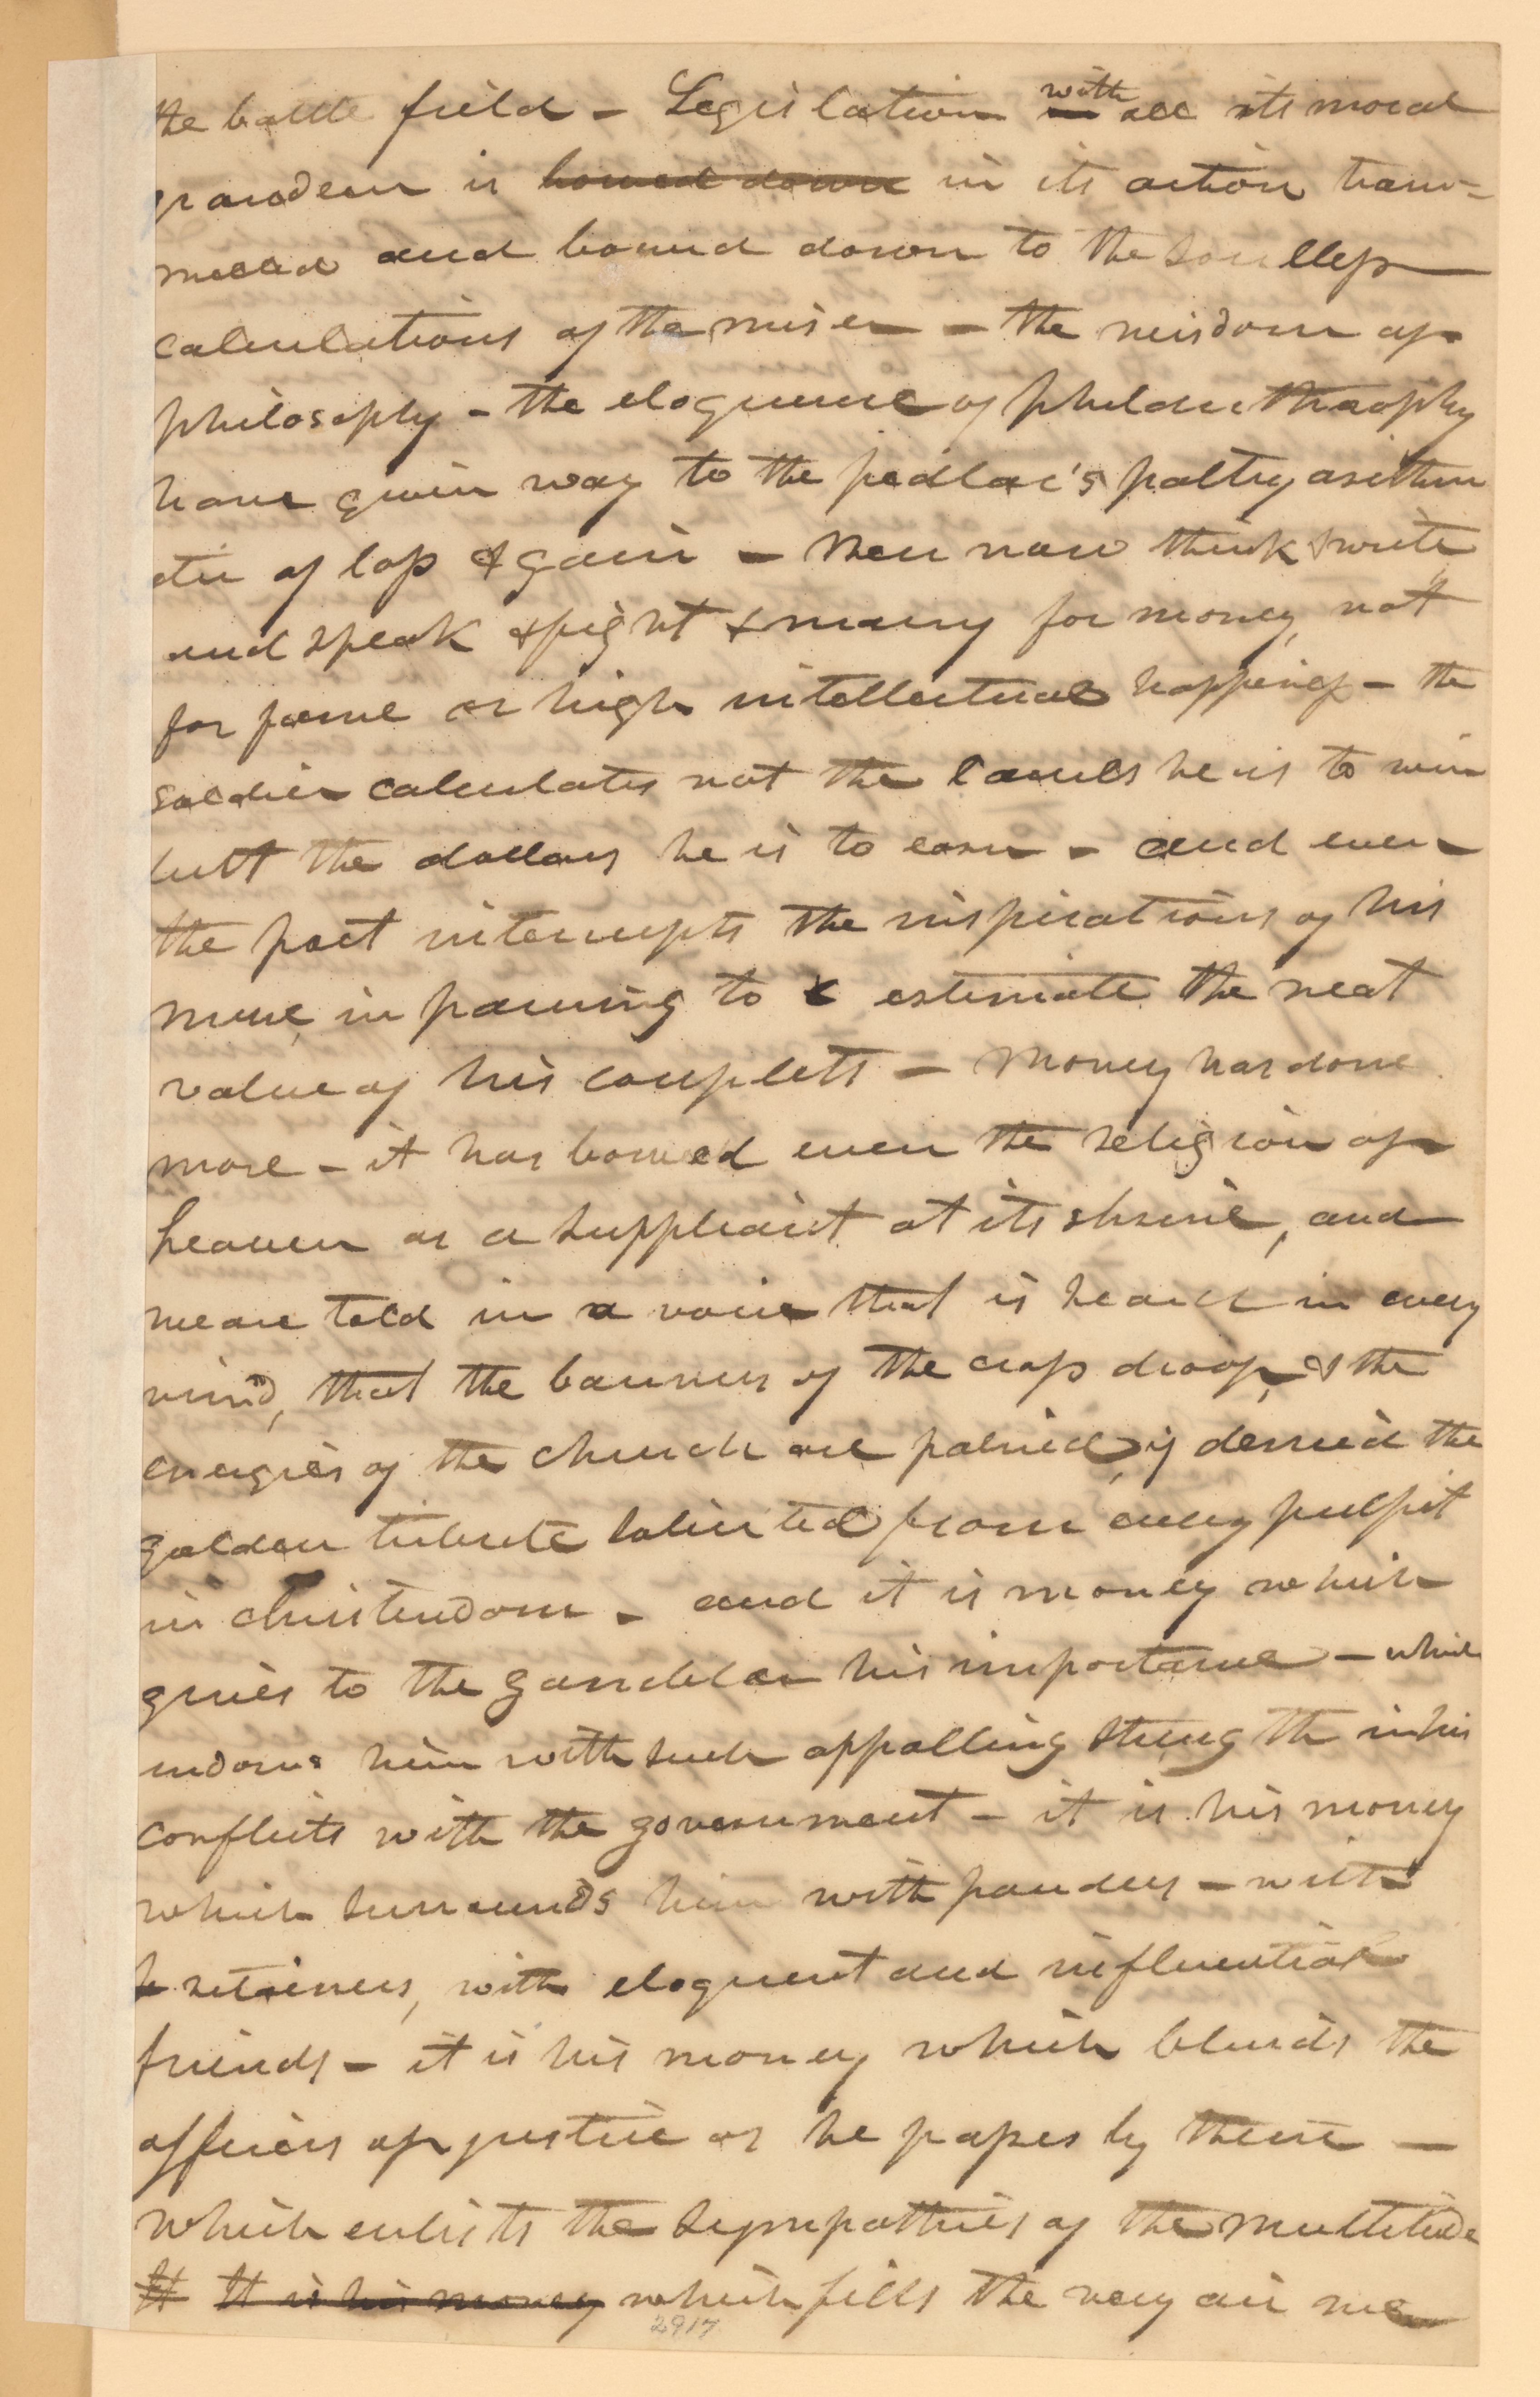 the battle field – Legislation with all its moral
grandeur is bowed down in its action tram-
meled and bound down to the soulless
calculations of the miser – the wisdom of
philosophy – the eloquence of philanthrophy
have given way to the pedlar's paltry arithm
etic of loss & gain – Men now think & write
and speak & fight & marry for money, not
for fame or high intellectual happiness – the
soldier calculates not the laurels he is to win
butt the dollars he is to earn – and even
the poet interrupts the inspirations of his
muse, in pausing to estimate the neat
value of his couplets – Money has done
more – it has bowed even the religion of
heaven as a suppliant at its shrine, and
we are told in a voice that is heard in every
wind, that the banners of the cross droop, & the
energies of the church are palsied, if denied the
golden tribute solicited from every pulpit
in christendom – and it is money which
gives to the gambler his importance – which
endows him with such appalling strength in his
conflicts with the government – it is his money
which surrounds him with panders – with
retainers, with eloquent and influential
friends – it is his money which blinds the
officers of justice as he passes by them –
which enlists the sympathies of the multitude
It It is his money which fills the very air we
2917